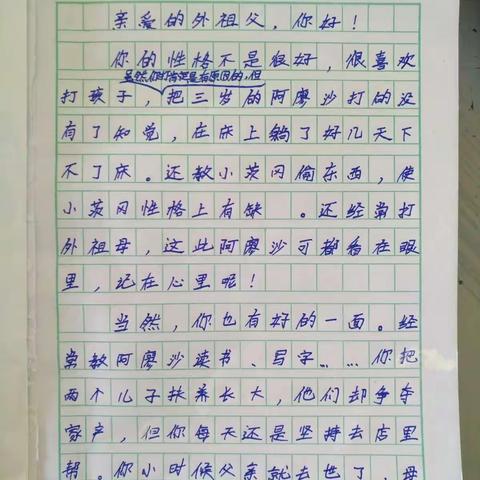 亲爱的外祖父，你好！
你的性格不是很好，很喜欢
虽然你打得是有原因的，但
打孩子，把三岁的阿廖沙打的没
有了知觉，在床上躺了好几天下
不了床。还教小茨冈偷东西，使
小茨冈性格上有缺　。还经常打
外祖母，这此阿廖沙可都看在眼
里，记在心里呢！
当然，你也有好的一面。经
常教阿廖沙读书、写字……你把
两个儿子扶养长大，他们却争夺
家产，但你每天还是坚持去店里
帮。你小时候父亲就去世了，母